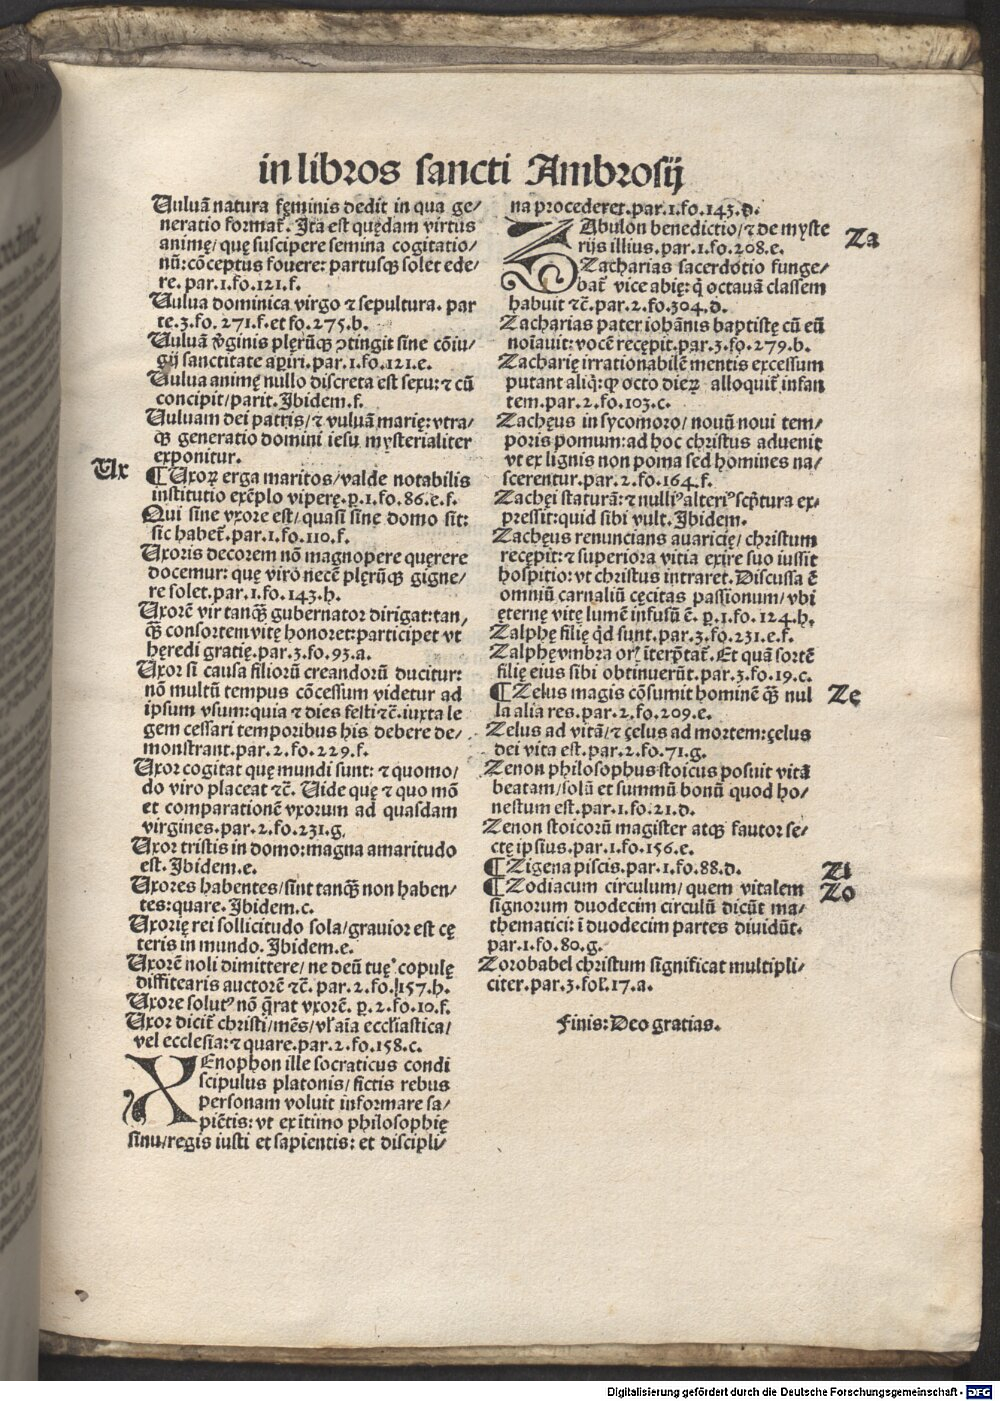 in libros sancti Ambrosij
Uuluã natura fęminis dedit in qua ge/
neratio format᷑. Ita est quędam virtus
animę/ quę suscipere semina cogitatio/
nũ: cõceptus fouere: partusq̃ solet ede/
re. par.1.fo.121.f.
Uulua dominica virgo ⁊ sepultura. par
te.3.fo. 271.f. et fo.275.b.
Uuluã v̾ginis plęrũq̃ ꝯtingit sine cõiu/
gij sanctitate aꝑiri. par.1.fo.121.e.
Uulua animę nullo discreta est sexu: ⁊ cũ
concipit/ parit. Ibidem.f.
Uuluam dei patris/ ⁊ vuluã marię: vtra/
q̃ generatio domini iesu mysterialiter
exponitur.
Ux
¶ Uxoꝝ erga maritos/ valde notabilis
institutio exẽplo viperę. p.1.fo.86.e.f.
Qui sine vxore est/ quasi sine domo sit:
sic habet᷑. par.1.fo.110.f.
Uxoris decorem nõ magnopere quęrere
docemur: quę viro necẽ plęrũq̃ gigne/
re solet. par.1.fo.143.h.
Uxorẽ vir tanq̃ gubernator dirigat: tan/
q̃ consortem vitę honoret: participet vt
hęredi gratię. par.3.fo.93.a.
Uxor si causa filiorũ creandorũ ducitur:
nõ multũ tempus cõcessum videtur ad
ipsum vsum: quia ⁊ dies festi ⁊c̃. iuxta le
gem cessari temporibus his debere de/
monstrant. par.2.fo.229.f.
Uxor cogitat quę mundi sunt: ⁊ quomo/
do viro placeat ⁊c̃. Uide quę ⁊ quo mõ
et comparationẽ vxorum ad quasdam
virgines. par.2.fo.231.g.
Uxor tristis in domo: magna amaritudo
est. Ibidem.e.
Uxores habentes/ sint tanq̃ non haben/
tes: quare. Ibidem.c.
Uxorię rei sollicitudo sola/ grauior est cę
teris in mundo. Ibidem.e.
Uxorẽ noli dimittere/ ne deũ tuę copulę
diffitearis auctorẽ ⁊c̃. par.2.fo.157.h.
Uxore solutꝰ nõ q̃rat vxorẽ. p.2.fo.10.f.
Uxor dicit᷑ christi/ mẽs/ vl̉ aĩa eccl̃iastica/
vel ecclesia: ⁊ quare. par.2.fo.158.c.
XEnophon ille socraticus condi
scipulus platonis/ fictis rebus
personam voluit informare sa/
piẽtis: vt ex ĩtimo philosophię
sinu/ regis iusti et sapientis: et discipli/
na procederet. par.1.fo.143.d.
Za
ZAbulon benedictio/ ⁊ de myste
rijs illius. par.1.fo.208.e.
Zacharias sacerdotio funge/
bat᷑ vice abię: q̃ octauã classem
habuit ⁊c̃. par.2.fo.304.d.
Zacharias pater iohãnis baptistę cũ eũ
noĩauit: vocẽ recępit. par.3.fo.279.b.
Zacharię irrationabilẽ mentis excessum
putant aliq̃: ꝙ octo dieꝝ alloquit᷑ infan
tem. par.2.fo.103.c.
Zachęus in sycomoro/ nouũ noui tem/
poris pomum: ad hoc christus aduenit
vt ex lignis non poma sed homines na/
scerentur. par.2.fo.164.f.
Zachęi staturã: ⁊ nulliꝰ alteriꝰ scp̃tura ex/
pressit: quid sibi vult. Ibidem.
Zachęus renuncians auaricię/ christum
recępit: ⁊ superiora vitia exire suo iussit
hospitio: vt christus intraret. Discussa ẽ
omniũ carnaliũ cęcitas passionum/ vbi
ęternę vitę lumẽ infusũ ẽ. p.1.fo.124.h.
Zalphę filię q̃d sunt. par.3.fo.231.e.f.
Zalphę vmbra or᷑ ĩterp̃tat᷑. Et quã sortẽ
filię eius sibi obtinuerũt. par.3.fo.19.c.
Ze
¶ Zelus magis cõsumit hominẽ q̃ nul
la alia res. par.2.fo.209.e.
Zelus ad vitã/ ⁊ çelus ad mortem: çelus
dei vita est. par.2.fo.71.g.
Zenon philosophus stoicus posuit vitã
beatam/ solũ et summũ bonũ quod ho/
nestum est. par.1.fo.21.d.
Zenon stoicorũ magister atq̃ fautor se/
ctę ipsius. par.1.fo.156.e.
¶ Zigena piscis. par.1.fo.88.d.
Zi
¶ Zodiacum circulum/ quem vitalem
Zo
signorum duodecim circulũ dicũt ma/
thematici: ĩ duodecim partes diuidũt.
par.1.fo.80.g.
Zorobabel christum significat multipli/
citer. par.3.fol.17.a.
Finis: Deo gratias.
Digitalisierung gefördert durch die Deutsche Forschungsgemeinschaft - DFG